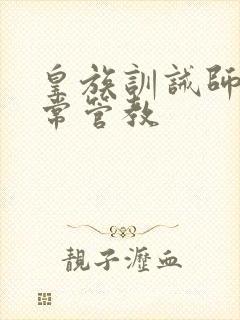 皇族訓誡師
常管教
靚子瀝血